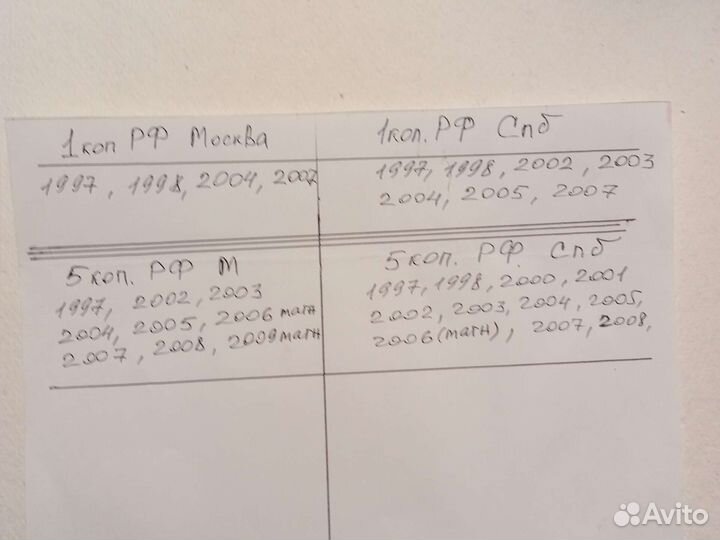 1 коп РФ Москва
1997, 1998, 2004, 2007
1 коп. РФ Спб
1997, 1998, 2002, 2003
2004, 2005, 2007
5 коп. РФ М
1997, 2002, 2003
2004, 2005, 2006 магн
2007, 2008, 2009 магн
5 коп. РФ Спб
1997, 1998, 2000, 2001
2002, 2003, 2004, 2005,
2006 (магн), 2007, 2008,
Avito